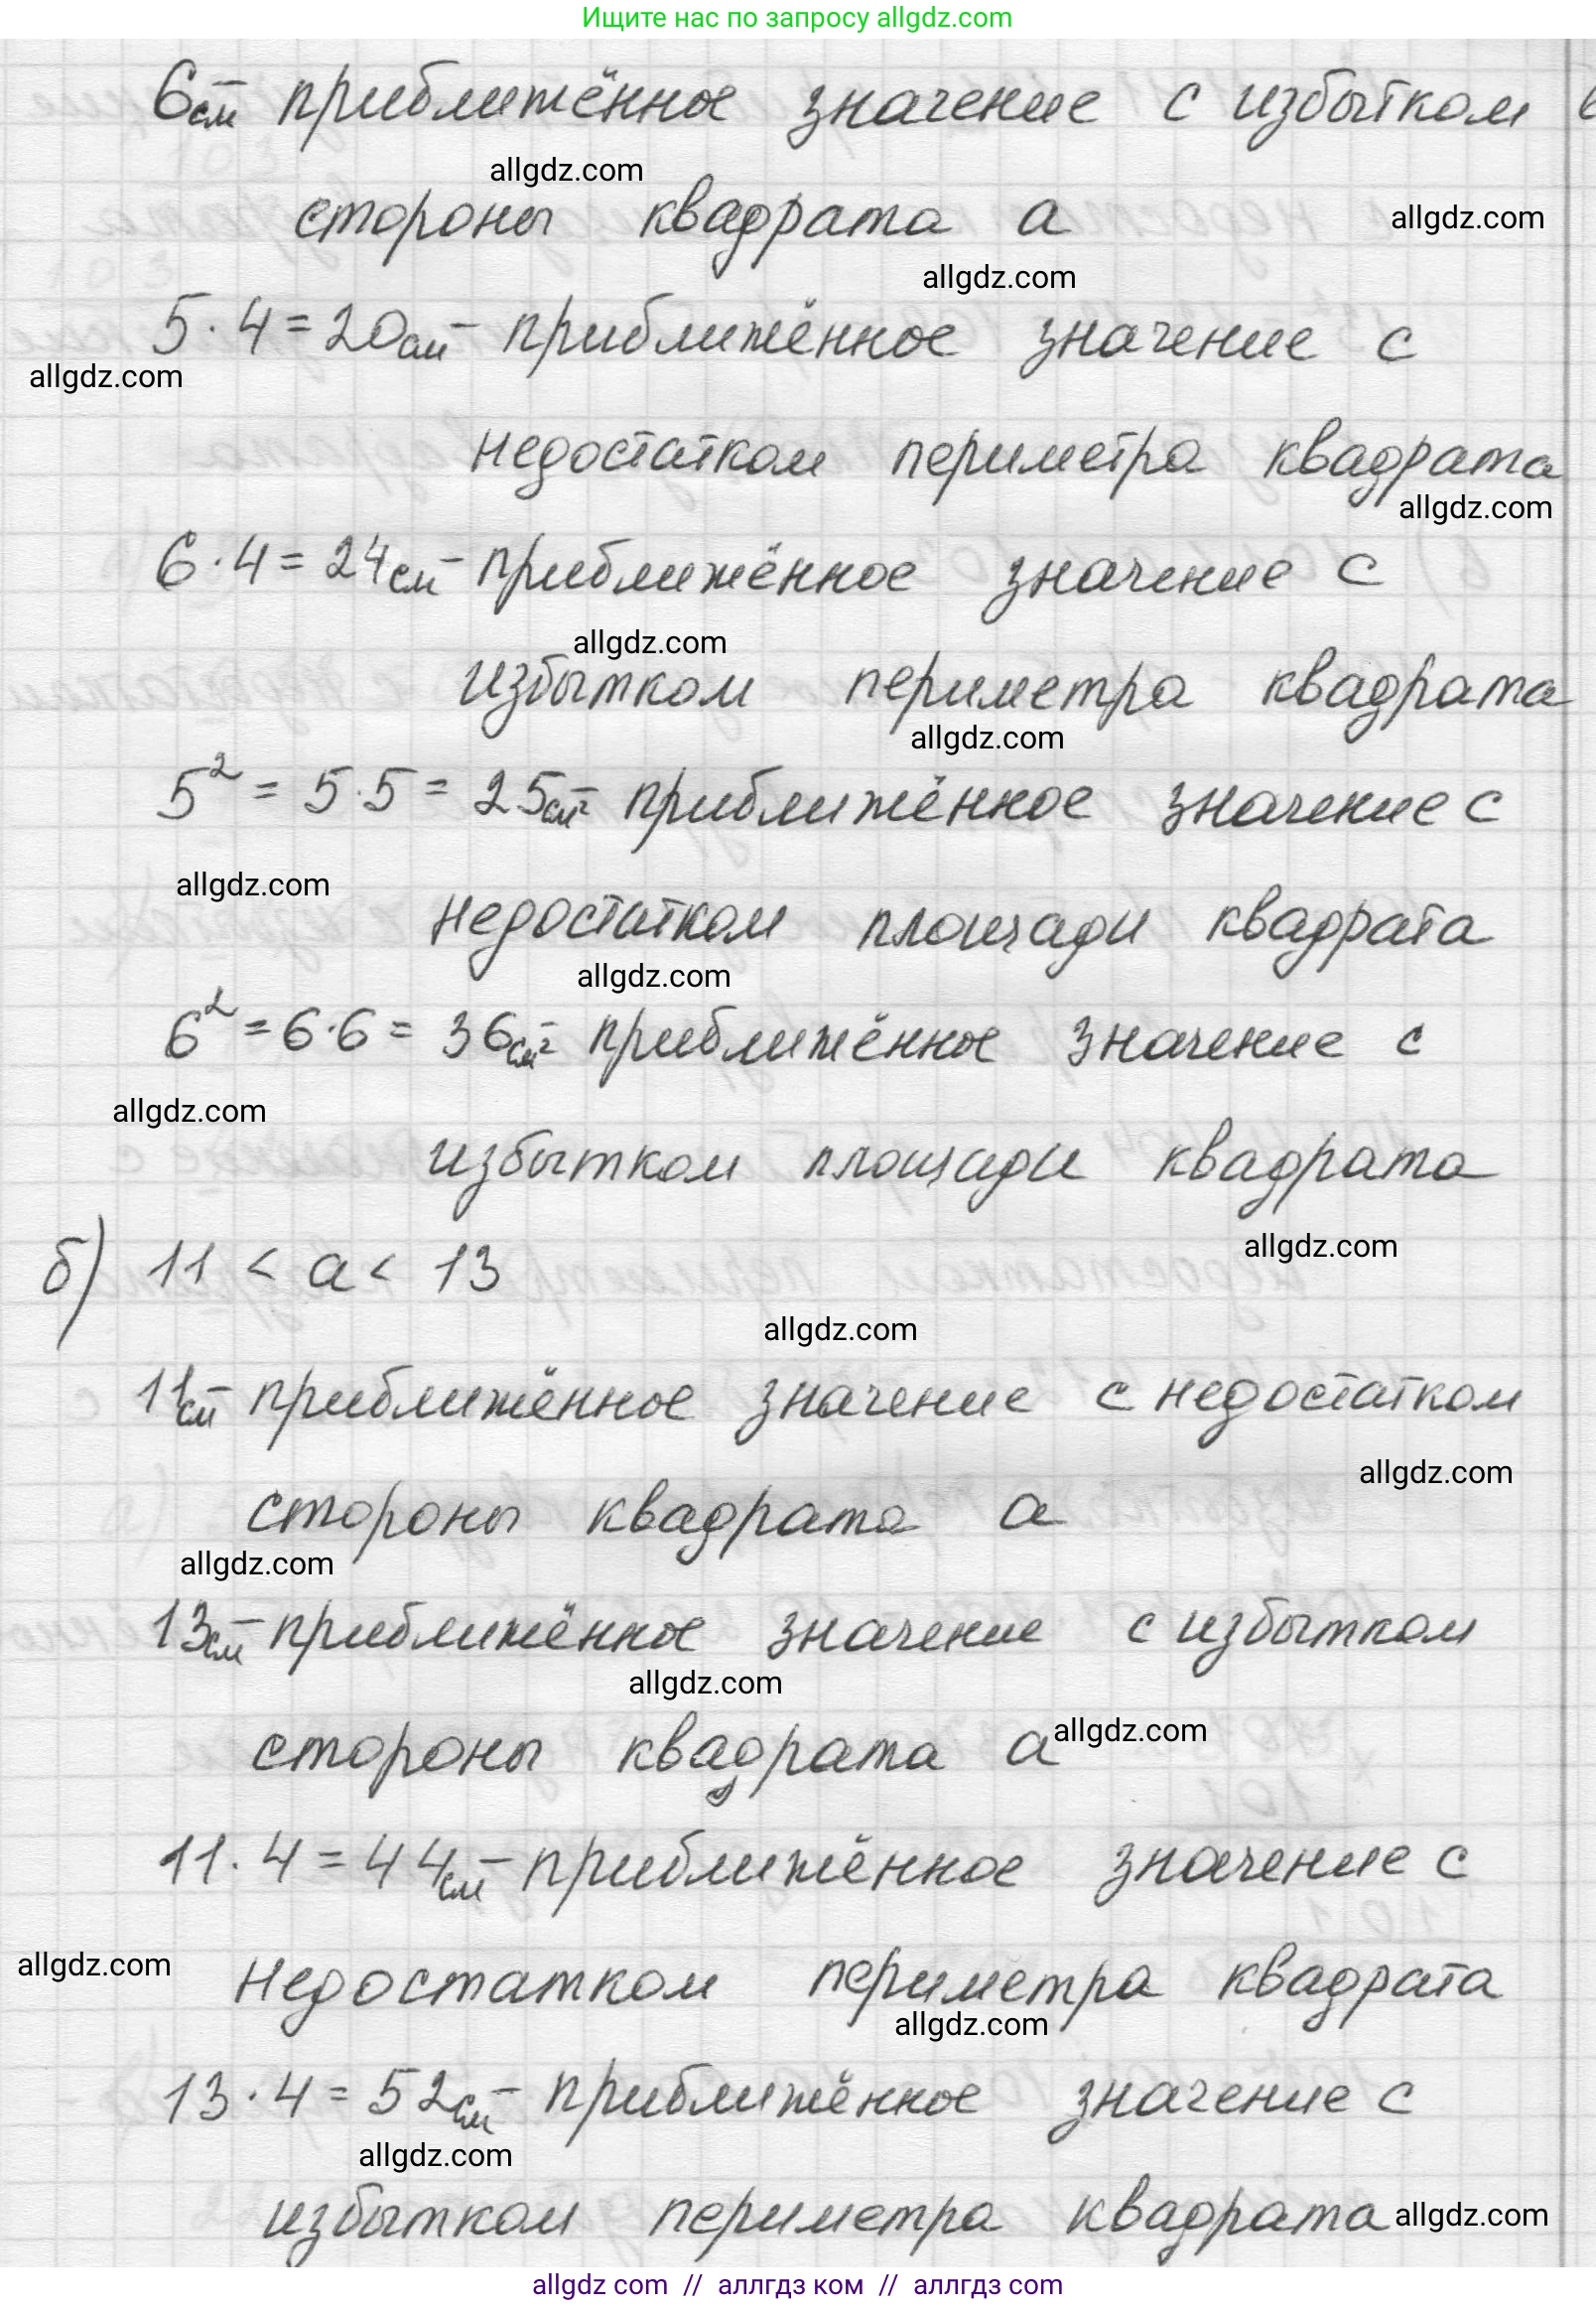 Ищите нас по запросу allgdz.com
6см – приближённое значение с избытком
allgdz.com
стороны квадрата a
allgdz.com
allgdz.com
5 · 4 = 20см – приближённое значение с
allgdz.com
недостатком периметра квадрата
allgdz.com
6 · 4 = 24см – приближённое значение с
allgdz.com
избытком периметра квадрата
allgdz.com
5² = 5 · 5 = 25см² – приближённое значение с
allgdz.com
недостатком площади квадрата
allgdz.com
6² = 6 · 6 = 36см² – приближённое значение с
allgdz.com
избытком площади квадрата
allgdz.com
б) 11 < a < 13
allgdz.com
11см – приближённое значение с недостатком
allgdz.com
стороны квадрата a
allgdz.com
13см – приближённое значение с избытком
allgdz.com
стороны квадрата a
allgdz.com
11 · 4 = 44см – приближённое значение с
allgdz.com
недостатком периметра квадрата
allgdz.com
13 · 4 = 52см – приближённое значение с
allgdz.com
избытком периметра квадрата
allgdz.com
allgdz com // аллгдз ком // аллгдз com